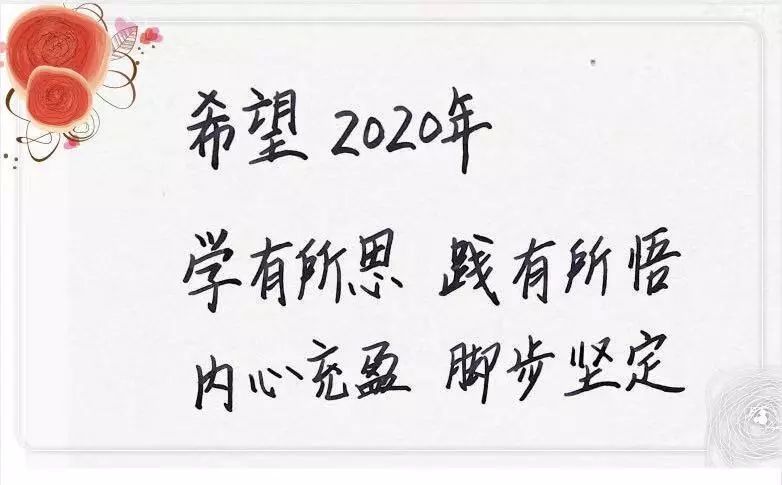 希望 2020年
学有所思 践有所悟
内心充盈 脚步坚定